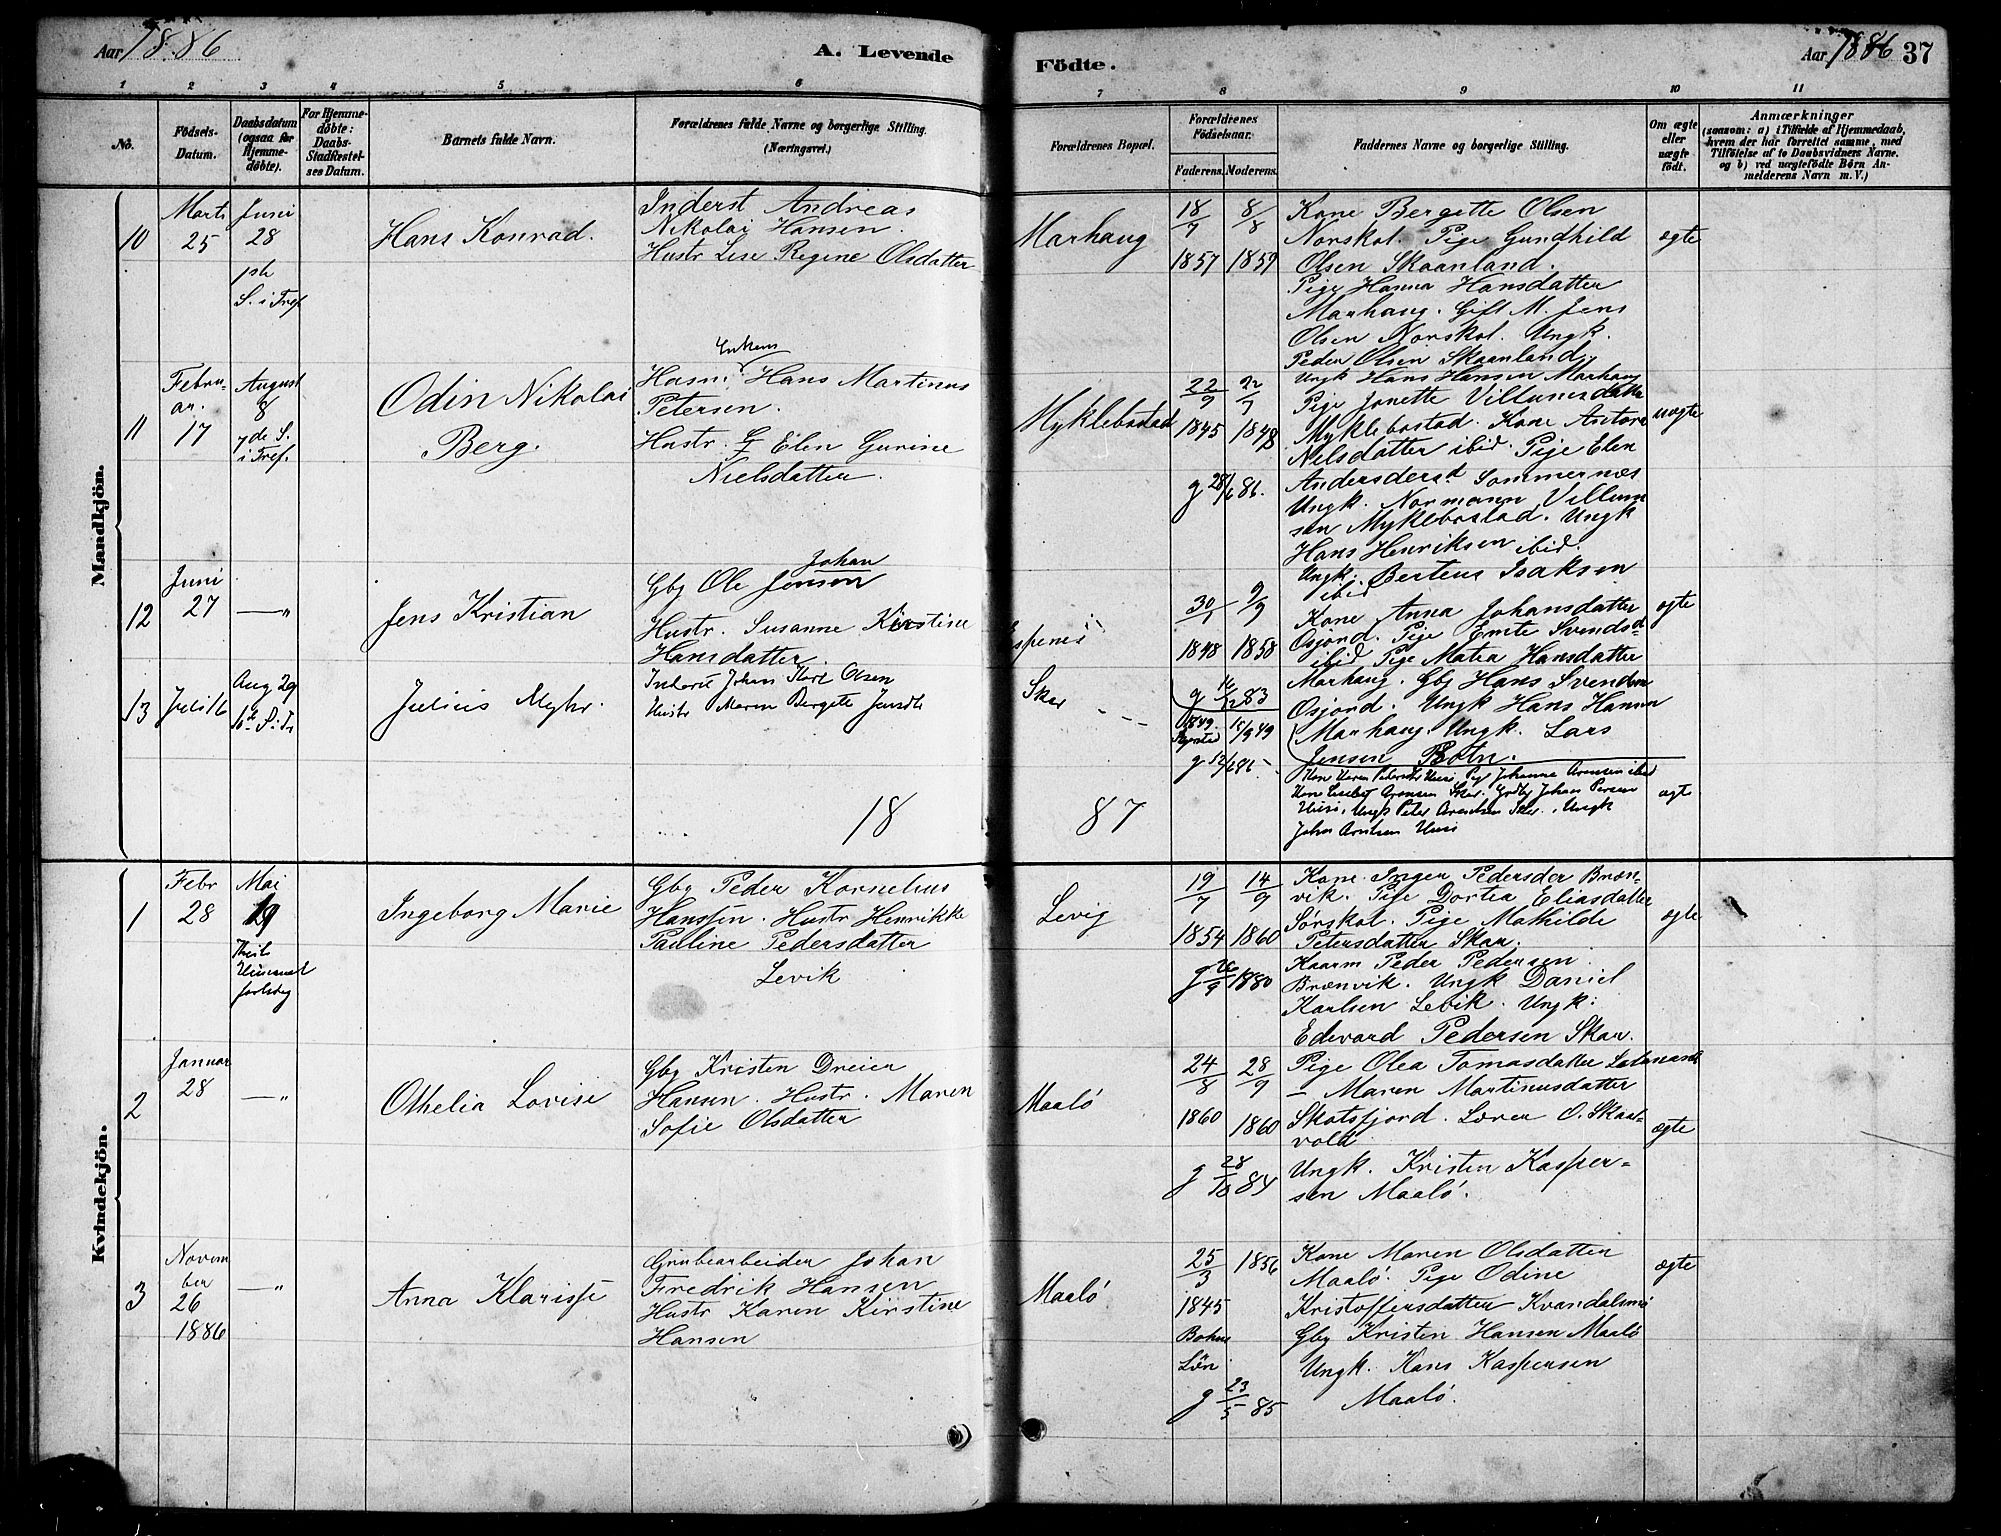 Aar 1886
A. Levende
Födte.
Aar 1886 37
1 2 3 4 5 6 7 8 9 10 11
No.
Födsels-
Datum.
Daabsdatum
(ogsaa for
Hjemme-
döbte).
For Hjemme-
döbte:
Daabs-
Stadfæstel-
ses Datum.
Barnets fulde Navn.
Forældrenes fulde Navne og borgerlige Stilling.
(Næringsvei.)
Forældrenes Bopæl.
Forældrenes
Födselsaar.
Faderens. Moderens.
Faddernes Navne og borgerlige Stilling.
Om ægte
eller
uægte
födt.
Anmærkninger
(saasom: a) i Tilfælde af Hjemmedaab,
hvem der har forrettet samme, med
Tilföielse af to Daabsvidners Navne.
og b) ved uægtefödte Börn An-
melderens Navn m. V.)
Mandkjön.
10
Marts
25
Juni
28
S. i Tref
Hans Konrad.
Inderst Andreas
Nikolai Hansen.
Hustr Lise Regine Olsdatter
Marhaug
18/7
1857
8/8
1859
Kone Bergette Olsen
Norskot. Pige Gundhild
Olsen Skaanland.
Pige Hanna Hansdatter
Marhaug. Gift M. Jens
Olsen Norskot. Ungk.
Peder Olsen Skaanland,
Ungk Hans Hansen Marhaug
ægte
11
Febru-
ar.
17
August
8
7de S.
i Tref.
Odin Nikolai
Berg.
Enkem
Husm. Hans Martinus
Petersen.
Hustr. G Elen Gurine
Nielsdatter.
Myklebostad
22/9
1845
22/7
1848
g 28/6 86.
Pige Jonette Villumsdatter
Myklebostad. Kone Antora
Nilsdatter ibid. Pige Elen
Andersdersd Sommernæs
Ungk. Normann Villum
sen Myklebostad. Ungk
Hans Henriksen ibid.
Ungk. Berteus Isaksen
ibid
uægte
12
Juni
27
— "
Jens Kristian
Johan
Gbg Ole Jenson
Hustr. Susanne Kirstine
Hansdatter.
30/1
1848
9/9
1858
g 16/12 83
Kone Anna Johansdatter
Osjord. Pige Emte Svendsd
ibid Pige Matea Hansdatter
Marhaug. Gbg Hans Svendsen
Osjord. Ungk Hans Hansen
Marhaug. Ungk. Lars
Jensen Botn.
ægte
13
Juli 16
Aug 29
10de S. i Tr
Julius Myhr.
Inderst Johan Karl Olsen
Hustr Maren Bergete Jansdtr
Skar
1849.
15/9 49
g 12/6 86
Kone Karen Pedersdtr Uusi, Pige Johanna Arensen ibid
Kone Lisebet Aronsen Skar. Grdbg Johan Persen
Uusi, Ungk Peter Arentsen Skar. Ungk
Johan Arntsen Uusi
ægt
18
87
Kvindekjön.
1
Febr
28
Mai
19
Kristi
Himmel
fartsdag
Ingeborg Marie
Gbg Peder Korselius
Hanssen. Hustr Henrikke
Pauline Pedersdatter
Levik
Levig
19/7
1854
14/9
1860
g 26/9 1880
Kone Inger Pedersder Bræn-
vik. Pige Dortea Eliasdatter
Sørskot. Pige Mathilde
Petersdatter Skar.
Kaarm Peder Pedersen
Brænvik. Ungk Daniel
Karlsen Levik. Ungk:
Edevard Pedersen Skar.
ægte
2
Januar
28
— "
Othelia Lovise
Gbg Kristen Dreier
Hansen. Hustr. Maren
Sofie Olsdatter
Maalö
24/8
1860
28/9
1860
g 28/10 84
Pige Olea Tomasdatter
— Maren Martinusdatter
Skotsfjord. Lærer O. Skaar-
vold
Ungk. Kristen Kasper-
sen Maalö.
ægte
3
Novem
ber
26
1886
— "
Anna Klarisse
Grubearbeider Johan
Fredrik Hansen
Hustr Karen Kirstine
Hansen
Maalö
25/3
1845
Bohus
Län
1856
g 23/5 85
Kone Maren Olsdatter
Maalö. Pige Odine
Kristoffersdatter Kvandalsmo
Gbg Kristen Hansen Maalö
Ungk. Hans Kaspersen
Maalö.
ægte